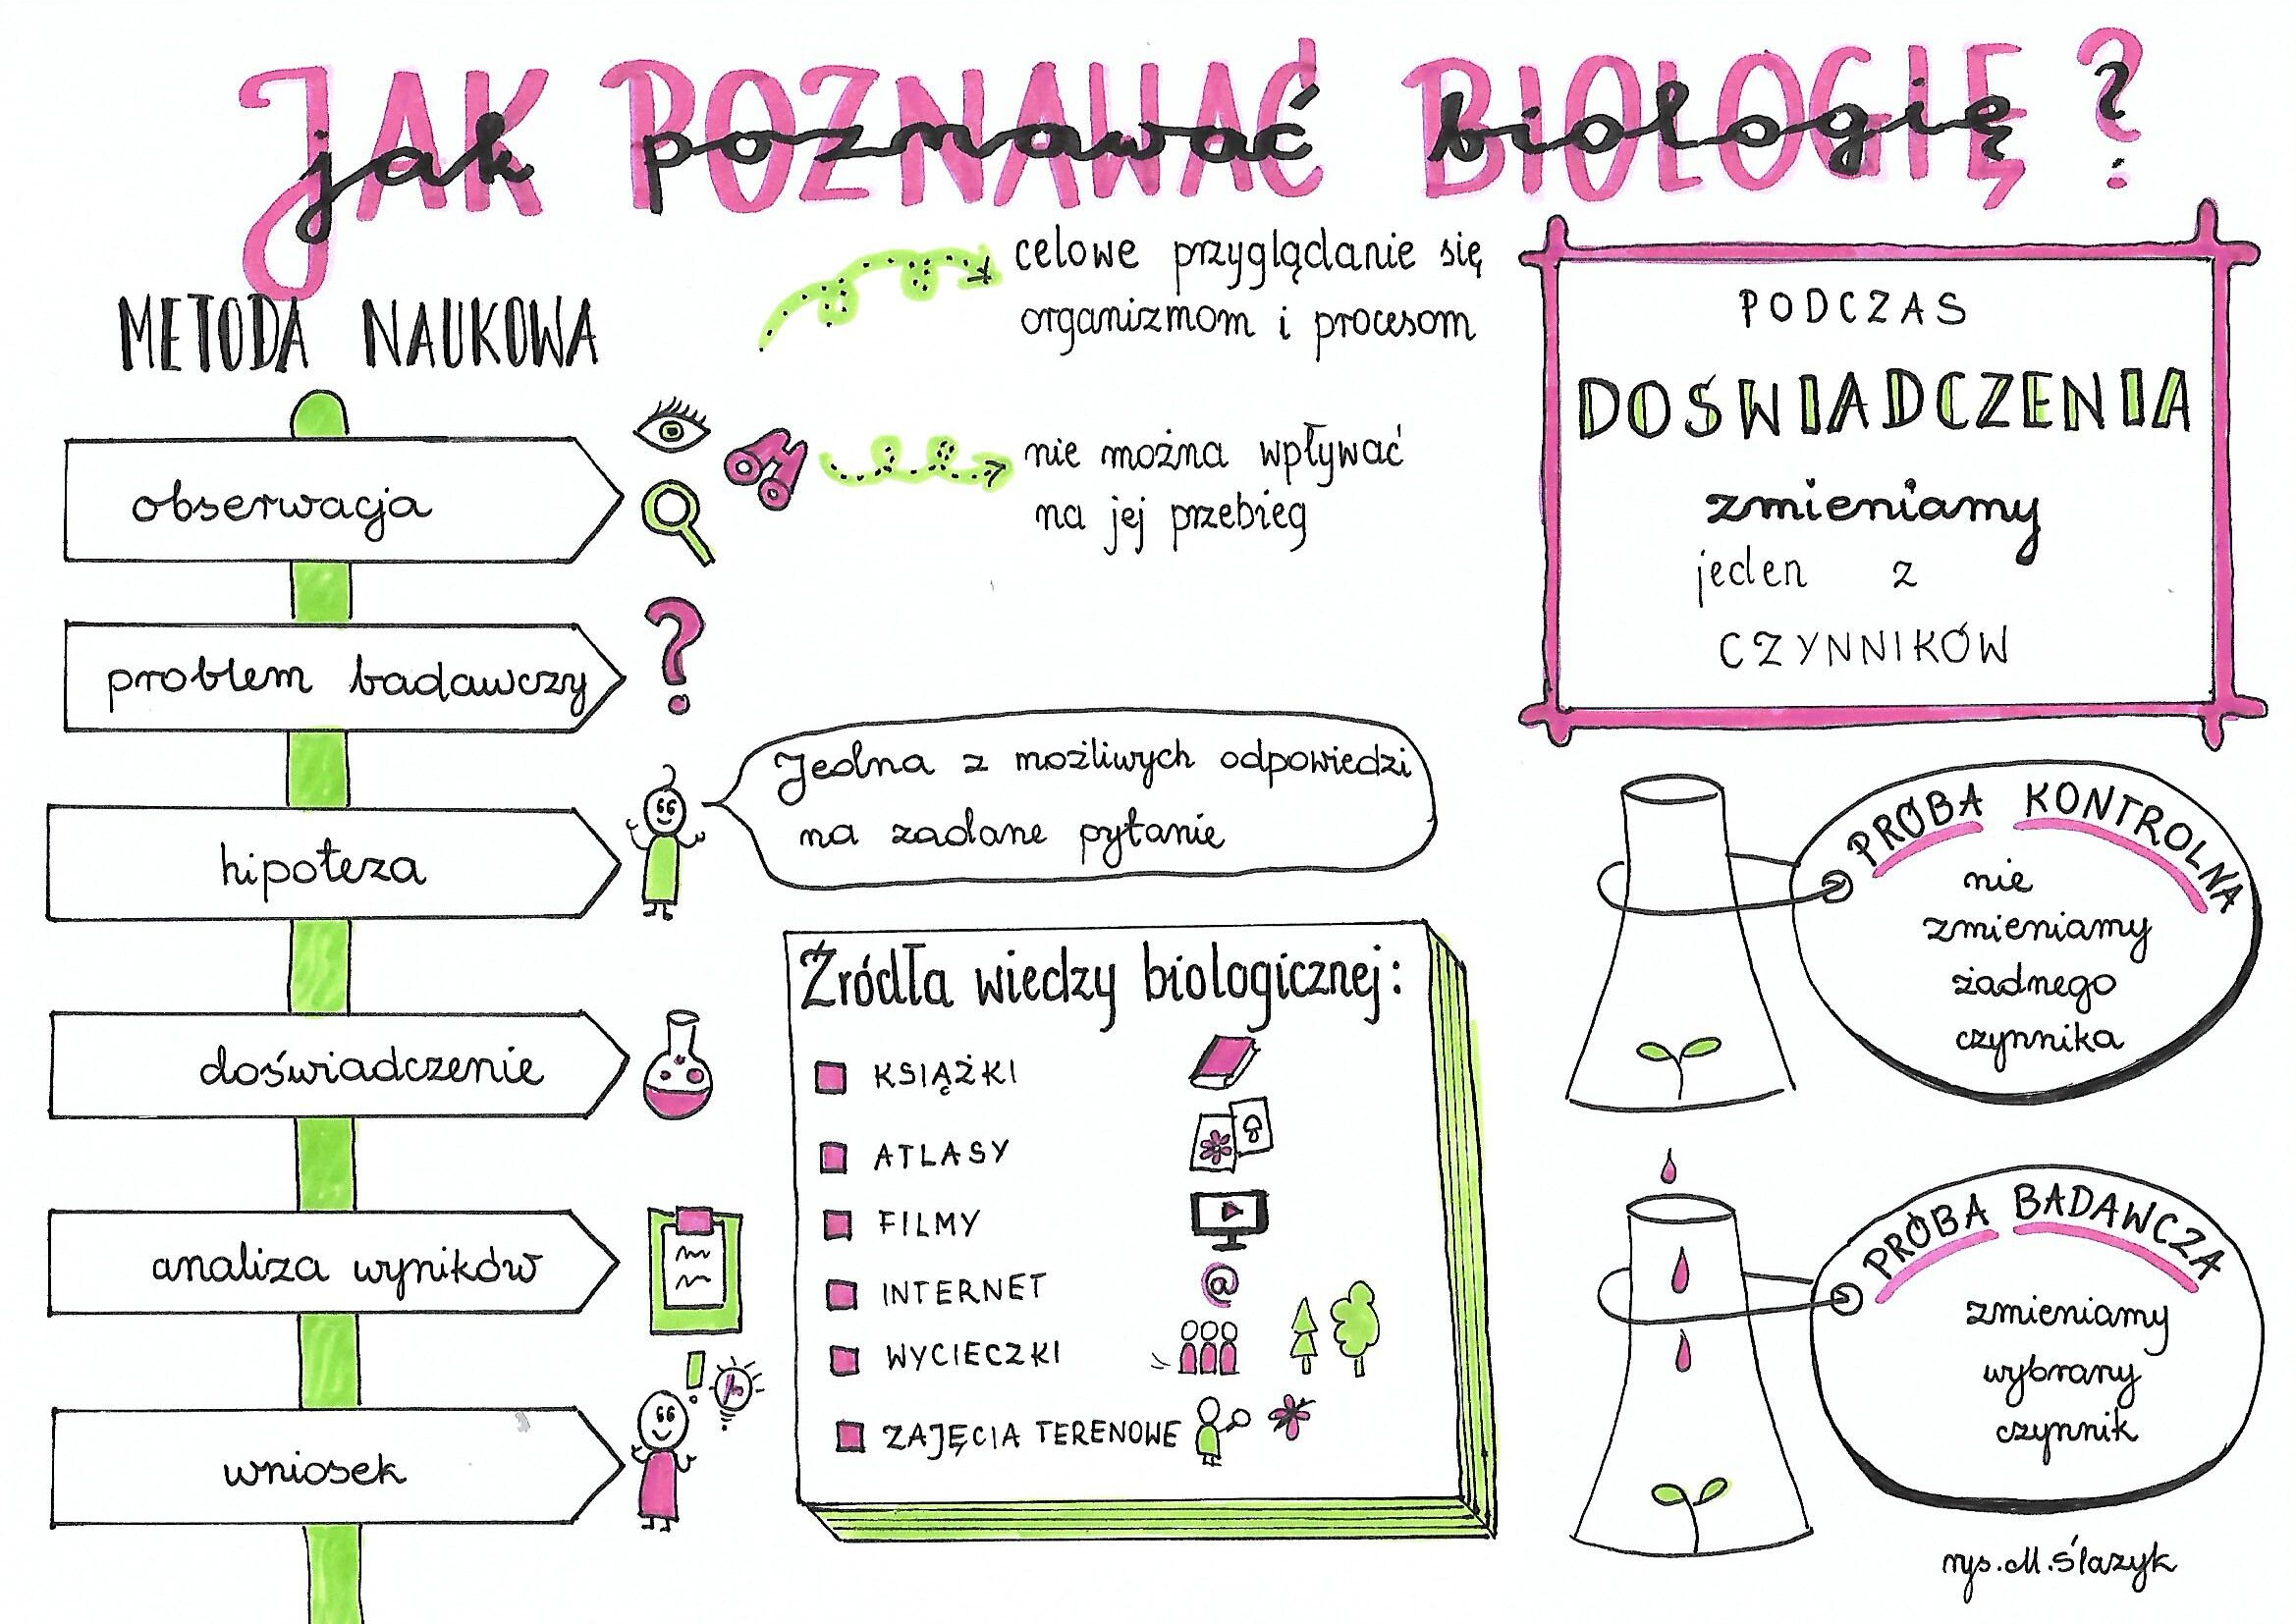 JAK POZNAWAĆ BIOLOGIĘ?
jak poznawać biologię?
METODA NAUKOWA
obserwacja
problem badawczy
hipoteza
doświadczenie
analiza wyników
wniosek
celowe przyglądanie się
organizmom i procesom
nie można wpływać
na jej przebieg
Jedna z możliwych odpowiedzi
na zadane pytanie
Źródła wiedzy biologicznej:
KSIĄŻKI
ATLASY
FILMY
INTERNET
@
WYCIECZKI
ZAJĘCIA TERENOWE
PODCZAS
DOŚWIADCZENIA
zmieniamy
jeden z
CZYNNIKÓW
PRÓBA KONTROLNA
nie
zmieniamy
żadnego
czynnika
PRÓBA BADAWCZA
zmieniamy
wybrany
czynnik
rys. M. Ślazyk